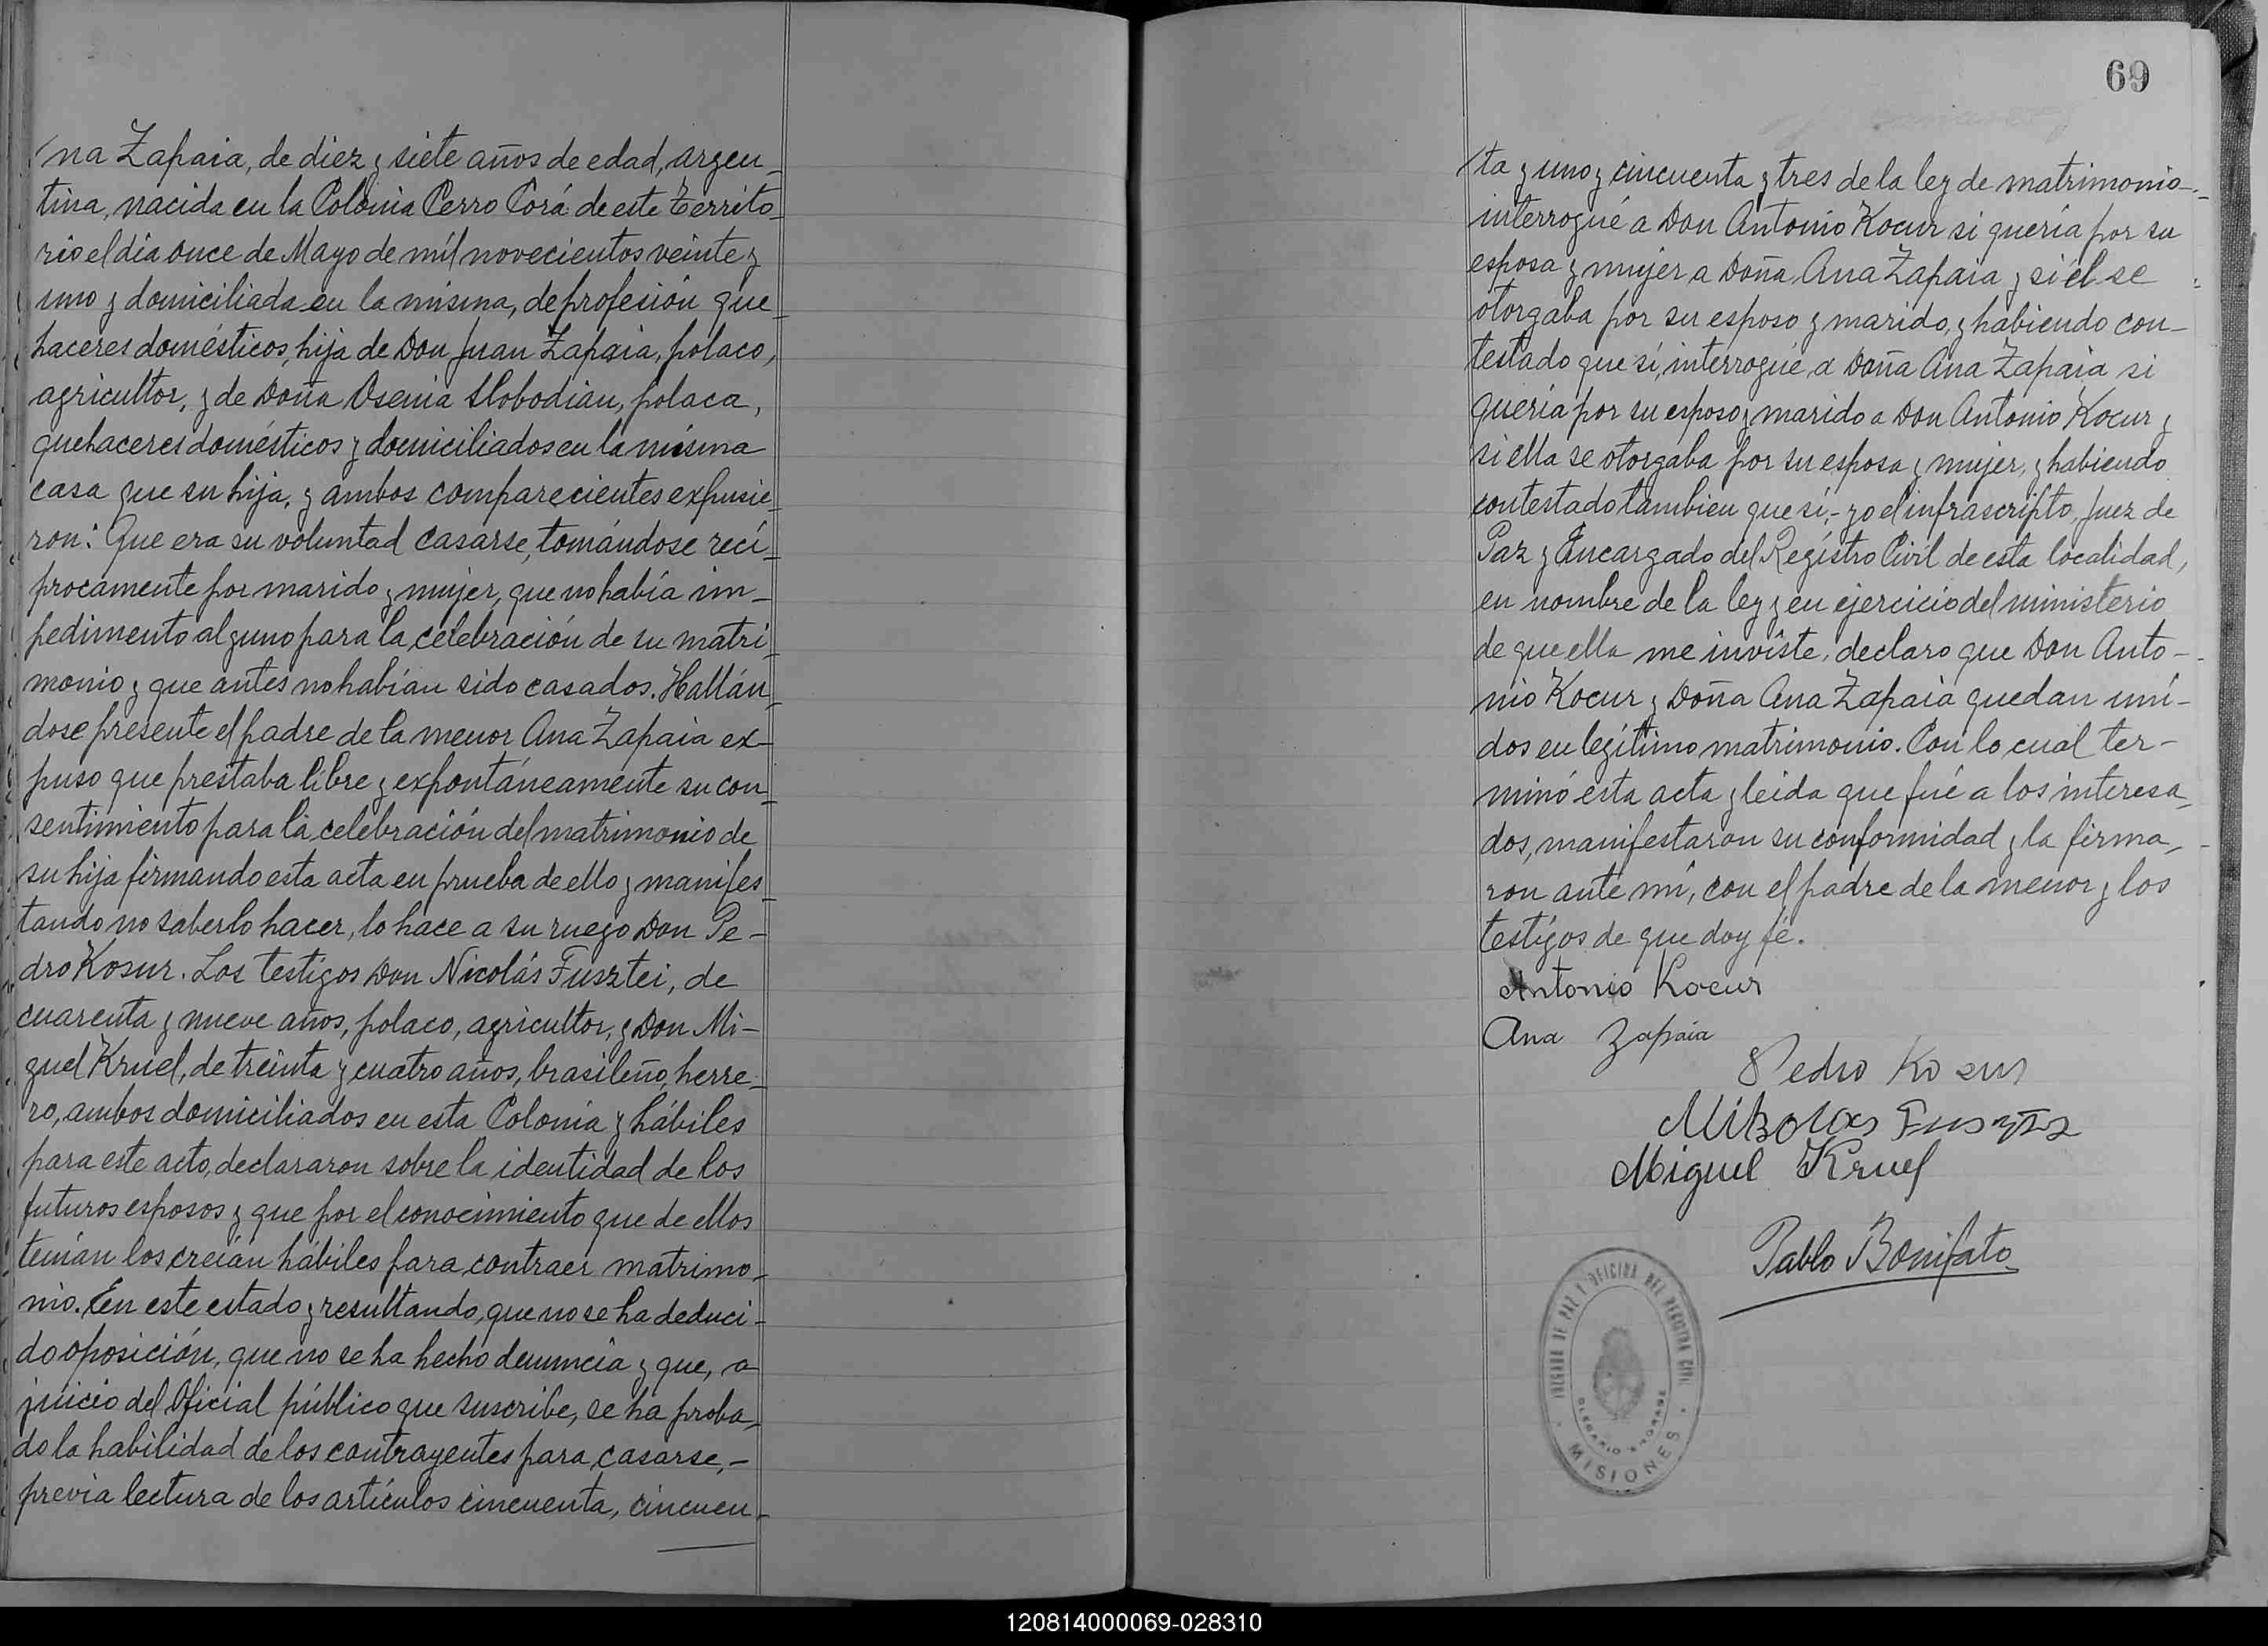 /na Zapaia, de diez y siete años de edad, argen-
tina, nacida en la Colonia Cerro Corá de este Territo-
rio el dia once de Mayo de mil novecientos veinte y
uno y domiciliada en la misma, de profesión que-
haceres domésticos, hija de Don Juan Zapaia, polaco,
agricultor, y de Doña Osenia Slobodian, polaca,
quehaceres domésticos y domiciliados en la misma
casa que su hija, y ambos comparecientes expusie-
ron: Que era su voluntad casarse, tomándose recí-
procamente por marido y mujer, que no había im-
pedimento alguno para la celebración de su matri-
monio y que antes no habían sido casados. Hallán-
dose presente el padre de la menor Ana Zapaia ex-
puso que prestaba libre y expontáneamente su con-
sentimiento para la celebración del matrimonio de
su hija firmando esta acta en prueba de ello y manifes-
tando no saberlo hacer, lo hace a su ruego Don Pe-
dro Kosur. Los testigos Don Nicolás Fusztei, de
cuarenta y nueve años, polaco, agricultor, y Don Mi-
guel Kruel, de treinta y cuatro años, brasileño, herre-
ro, ambos domiciliados en esta Colonia y hábiles
para este acto, declararon sobre la identidad de los
futuros esposos y que por el conocimiento que de ellos
tenían los creían hábiles para contraer matrimo-
nio. En este estado y resultando, que no se ha deduci-
do oposición, que no se ha hecho denuncia y que, a
juicio del Oficial público que suscribe, se ha proba-
do la habilidad de los contrayentes para casarse,-
previa lectura de los artículos cincuenta, cincuen-
69
/ta y uno y cincuenta y tres de la ley de matrimonio-
interrogué a Don Antonio Kocur si quería por su
esposa y mujer a Doña Ana Zapaia y si él se
otorgaba por su esposo y marido, y habiendo con-
testado que sí, interrogué a Doña Ana Zapaia si
quería por su esposo y marido a Don Antonio Kocur y
si ella se otorgaba por su esposa y mujer, y habiendo
contestado tambien que sí,- yo el infrascripto, Juez de
Paz y Encargado del Registro Civil de esta localidad,
en nombre de la ley y en ejercicio del ministerio
de que ella me inviste, declaro que Don Anto-
nio Kocur y Doña Ana Zapaia quedan uni-
dos en legítimo matrimonio. Con lo cual ter-
minó esta acta y leída que fué a los interesa-
dos, manifestaron su conformidad y la firma-
ron ante mí, con el padre de la menor y los
testigos de que doy fé.
Antonio Kocur
Ana Zapaia
Pedro Kosur
Mikolas
Miguel Kruel
Pablo Bonifato
JUZGADO DE PAZ Y OFICINA DEL REGISTRO CIVIL
MISIONES
120814000069-028310